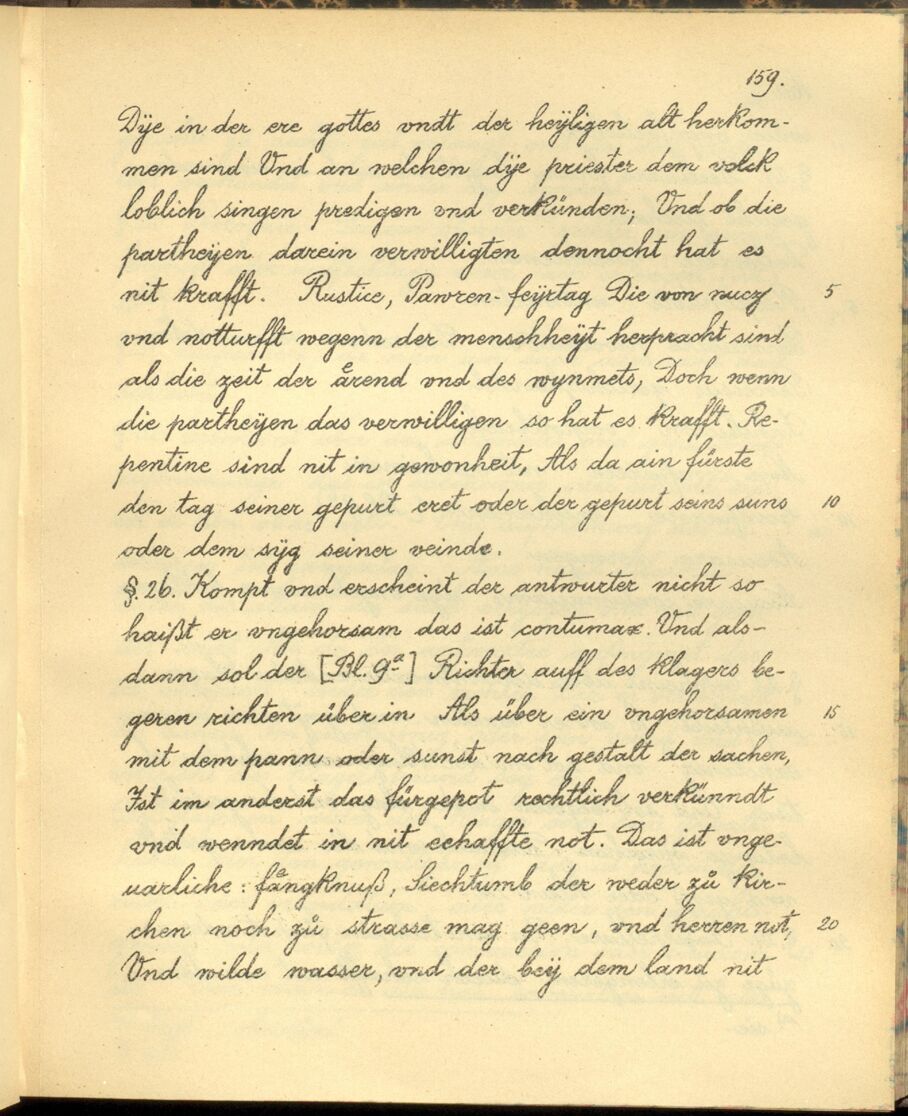 159.
Dÿe in der ere gottes vndt der heÿligen alt herkom-
men sind Vnd an welchen dÿe priester dem volck
loblich singen predigen vnd verkünden; Vnd ob die
partheÿen darein verwilligten dennocht hat es
nit krafft. Rustice, Pawren-feÿrtag Die von nucz 5
vnd notturfft wegenn der menschheÿt herpracht sind
als die zeit der aͤrend vnd des wynmets, Doch wenn
die partheÿen das verwilligen so hat es krafft. Re-
pentine sind nit in gewonheit, Als da ain fürste
den tag seiner gepurt eret oder der gepurt seins suns 10
oder dem sÿg seiner veinde.
§. 26. Kompt vnd erscheint der antwurter nicht so
haißt er vngehorsam das ist contumax. Vnd als-
dann sol der [Bl. 9ª] Richter auff des klagers be-
geren richten über in Als über ein vngehorsamen 15
mit dem pann oder sunst nach gestalt der sachen,
Ist im anderst das fürgepot rechtlich verkünndt
vnd wenndet in nit eehaffte not. Das ist vnge-
uarliche: faͤngknuß, Siechtumb der weder zů kir-
chen noch zů strasse mag geen, vnd herren not, 20
Vnd wilde wasser, vnd der beÿ dem land nit